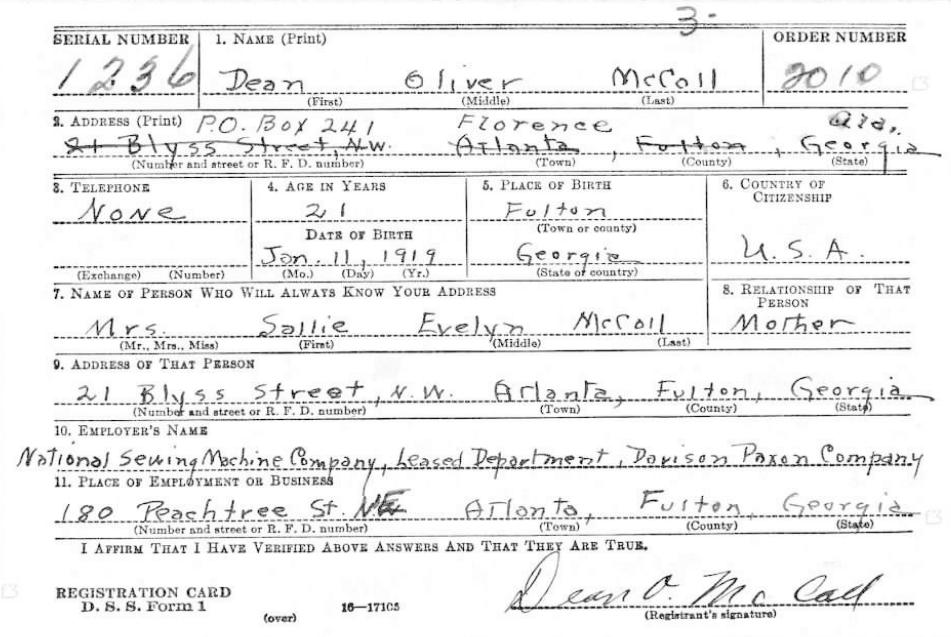 3-
SERIAL NUMBER 1. NAME (Print) ORDER NUMBER
1236 Dean Oliver McCall 2010
(First) (Middle) (Last)
2. ADDRESS (Print) P.O. Box 241 Florence Ala.
21 Blyss Street, N.W. Atlanta, Fulton, Georgia
(Number and street or R. F. D. number) (Town) (County) (State)
3. TELEPHONE 4. AGE IN YEARS 5. PLACE OF BIRTH 6. COUNTRY OF
CITIZENSHIP
None 21 Fulton
(Town or county)
DATE OF BIRTH
Jan. 11, 1919 Georgia U.S.A.
(Exchange) (Number) (Mo.) (Day) (Yr.) (State or country)
7. NAME OF PERSON WHO WILL ALWAYS KNOW YOUR ADDRESS 8. RELATIONSHIP OF THAT
PERSON
Mrs. Sallie Evelyn McCall Mother
(Mr., Mrs., Miss) (First) (Middle) (Last)
9. ADDRESS OF THAT PERSON
21 Blyss Street, N.W. Atlanta, Fulton, Georgia
(Number and street or R. F. D. number) (Town) (County) (State)
10. EMPLOYER'S NAME
National Sewing Machine Company, Leased Department, Davison Paxon Company
11. PLACE OF EMPLOYMENT OR BUSINESS
180 Peachtree St. NE Atlanta, Fulton, Georgia
(Number and street or R. F. D. number) (Town) (County) (State)
I AFFIRM THAT I HAVE VERIFIED ABOVE ANSWERS AND THAT THEY ARE TRUE.
REGISTRATION CARD
D. S. S. Form 1 (over) 16—17105 Dean O. McCall
(Registrant's signature)